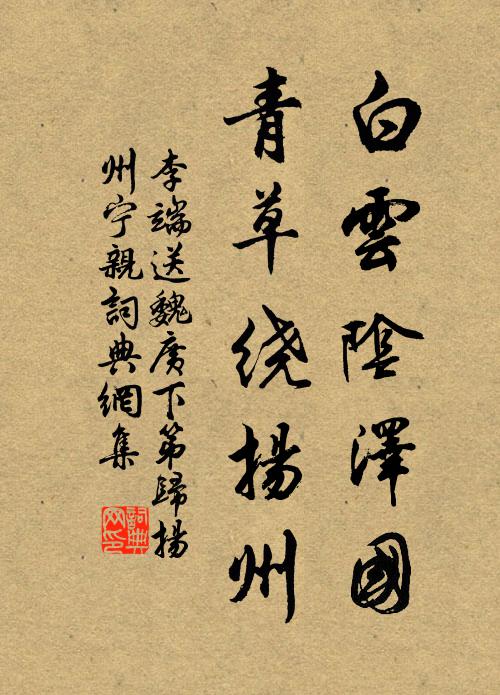 白雲陰澤國
青草绕揚州
李端送魏广下第歸揚
州宁親詞典網集
詞典网印